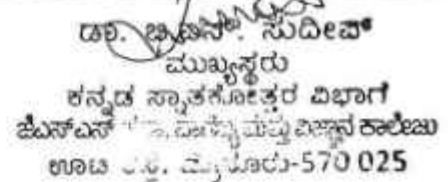 ಡಾ. ಸುದೀಪ್
ಮುಖ್ಯಸ್ಥರು
ಕನ್ನಡ ಸ್ನಾತಕೋತ್ತರ ವಿಭಾಗ
ಜೆಎಸ್ಎಸ್ ಮತ್ತು ವಿಜ್ಞಾನ ಕಾಲೇಜು
ಊಟಿ ರಸ್ತೆ, ಮೈಸೂರು-570 025